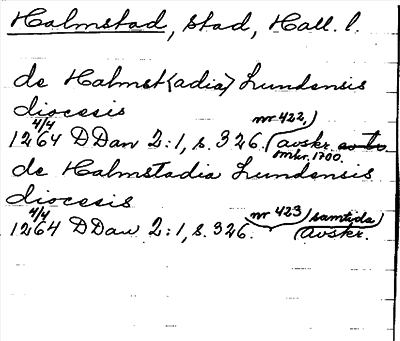 Halmstad, stad, Hall. l.
de Halmst<adia> Lundensis
diocesis
4/4 nr 422,
1264 DDan 2:1, s. 326. (avskr.
omkr. 1700.
de Halmstadia Lundensis
diocesis
4/4 nr 423 samtida)
1264 DDan 2:1, s. 326. (avskr.